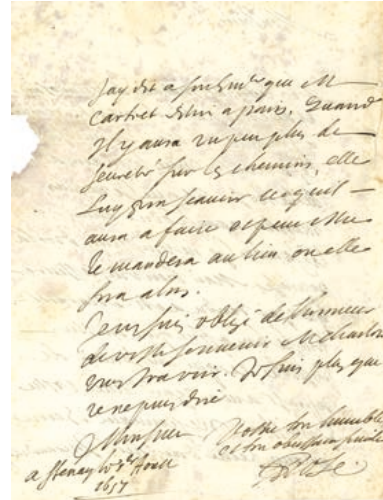 J'ay dit a son Em.ce que M
estoit a paris. Quand
Il y aura un peu plus de
seureté sur les chemins, elle
luy fera scavoir ce qu'il
aura a faire et peut estre
le mandera au lieu ou elle
sera alors.
Je vous suis obligé de l'honneur
de vostre souvenir M
vous Je suis plus que
je ne puis dire
Monsieur
Vostre tres humble
et tres obeissant servite
a Stenay le Aoust
1657
Rose